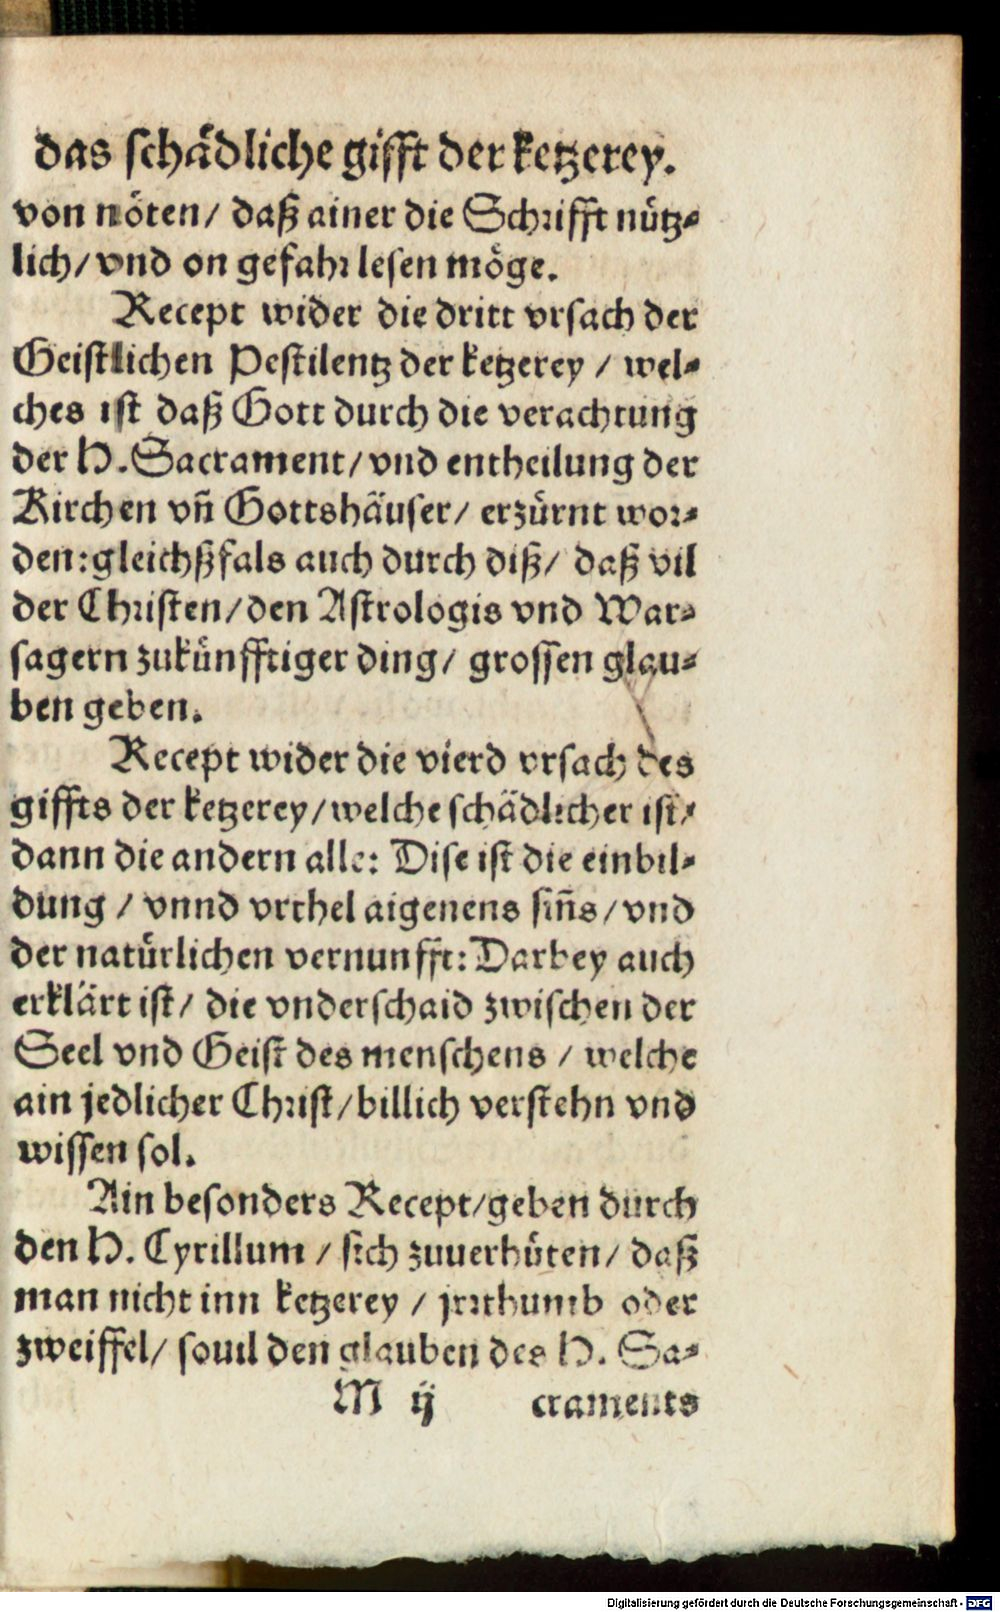 das schädliche gifft der ketzerey.
von nöten/ daß ainer die Schrifft nütz⸗
lich/ vnd on gefahr lesen möge.
Recept wider die dritt vrsach der
Geistlichen Pestilentz der ketzerey / wel⸗
ches ist daß Gott durch die verachtung
der H. Sacrament/ vnd entheilung der
Kirchen vñ Gottshäuser/ erzürnt wor⸗
den: gleichßfals auch durch diß/ daß vil
der Christen/ den Astrologis vnd War⸗
sagern zukünfftiger ding/ grossen glau⸗
ben geben.
Recept wider die vierd vrsach des
giffts der ketzerey/ welche schädlicher ist/
dann die andern alle: Dise ist die einbil⸗
dung / vnnd vrthel aigenens siñs/ vnd
der natürlichen vernunfft: Darbey auch
erklärt ist/ die vnderschaid zwischen der
Seel vnd Geist des menschens / welche
ain jedlicher Christ/ billich verstehn vnd
wissen sol.
Ain besonders Recept/ geben durch
den H. Cyrillum / sich zuuerhüten/ daß
man nicht inn ketzerey / jrrthumb oder
zweiffel/ souil den glauben des H. Sa⸗
M ij craments
Digitalisierung gefördert durch die Deutsche Forschungsgemeinschaft - DFG